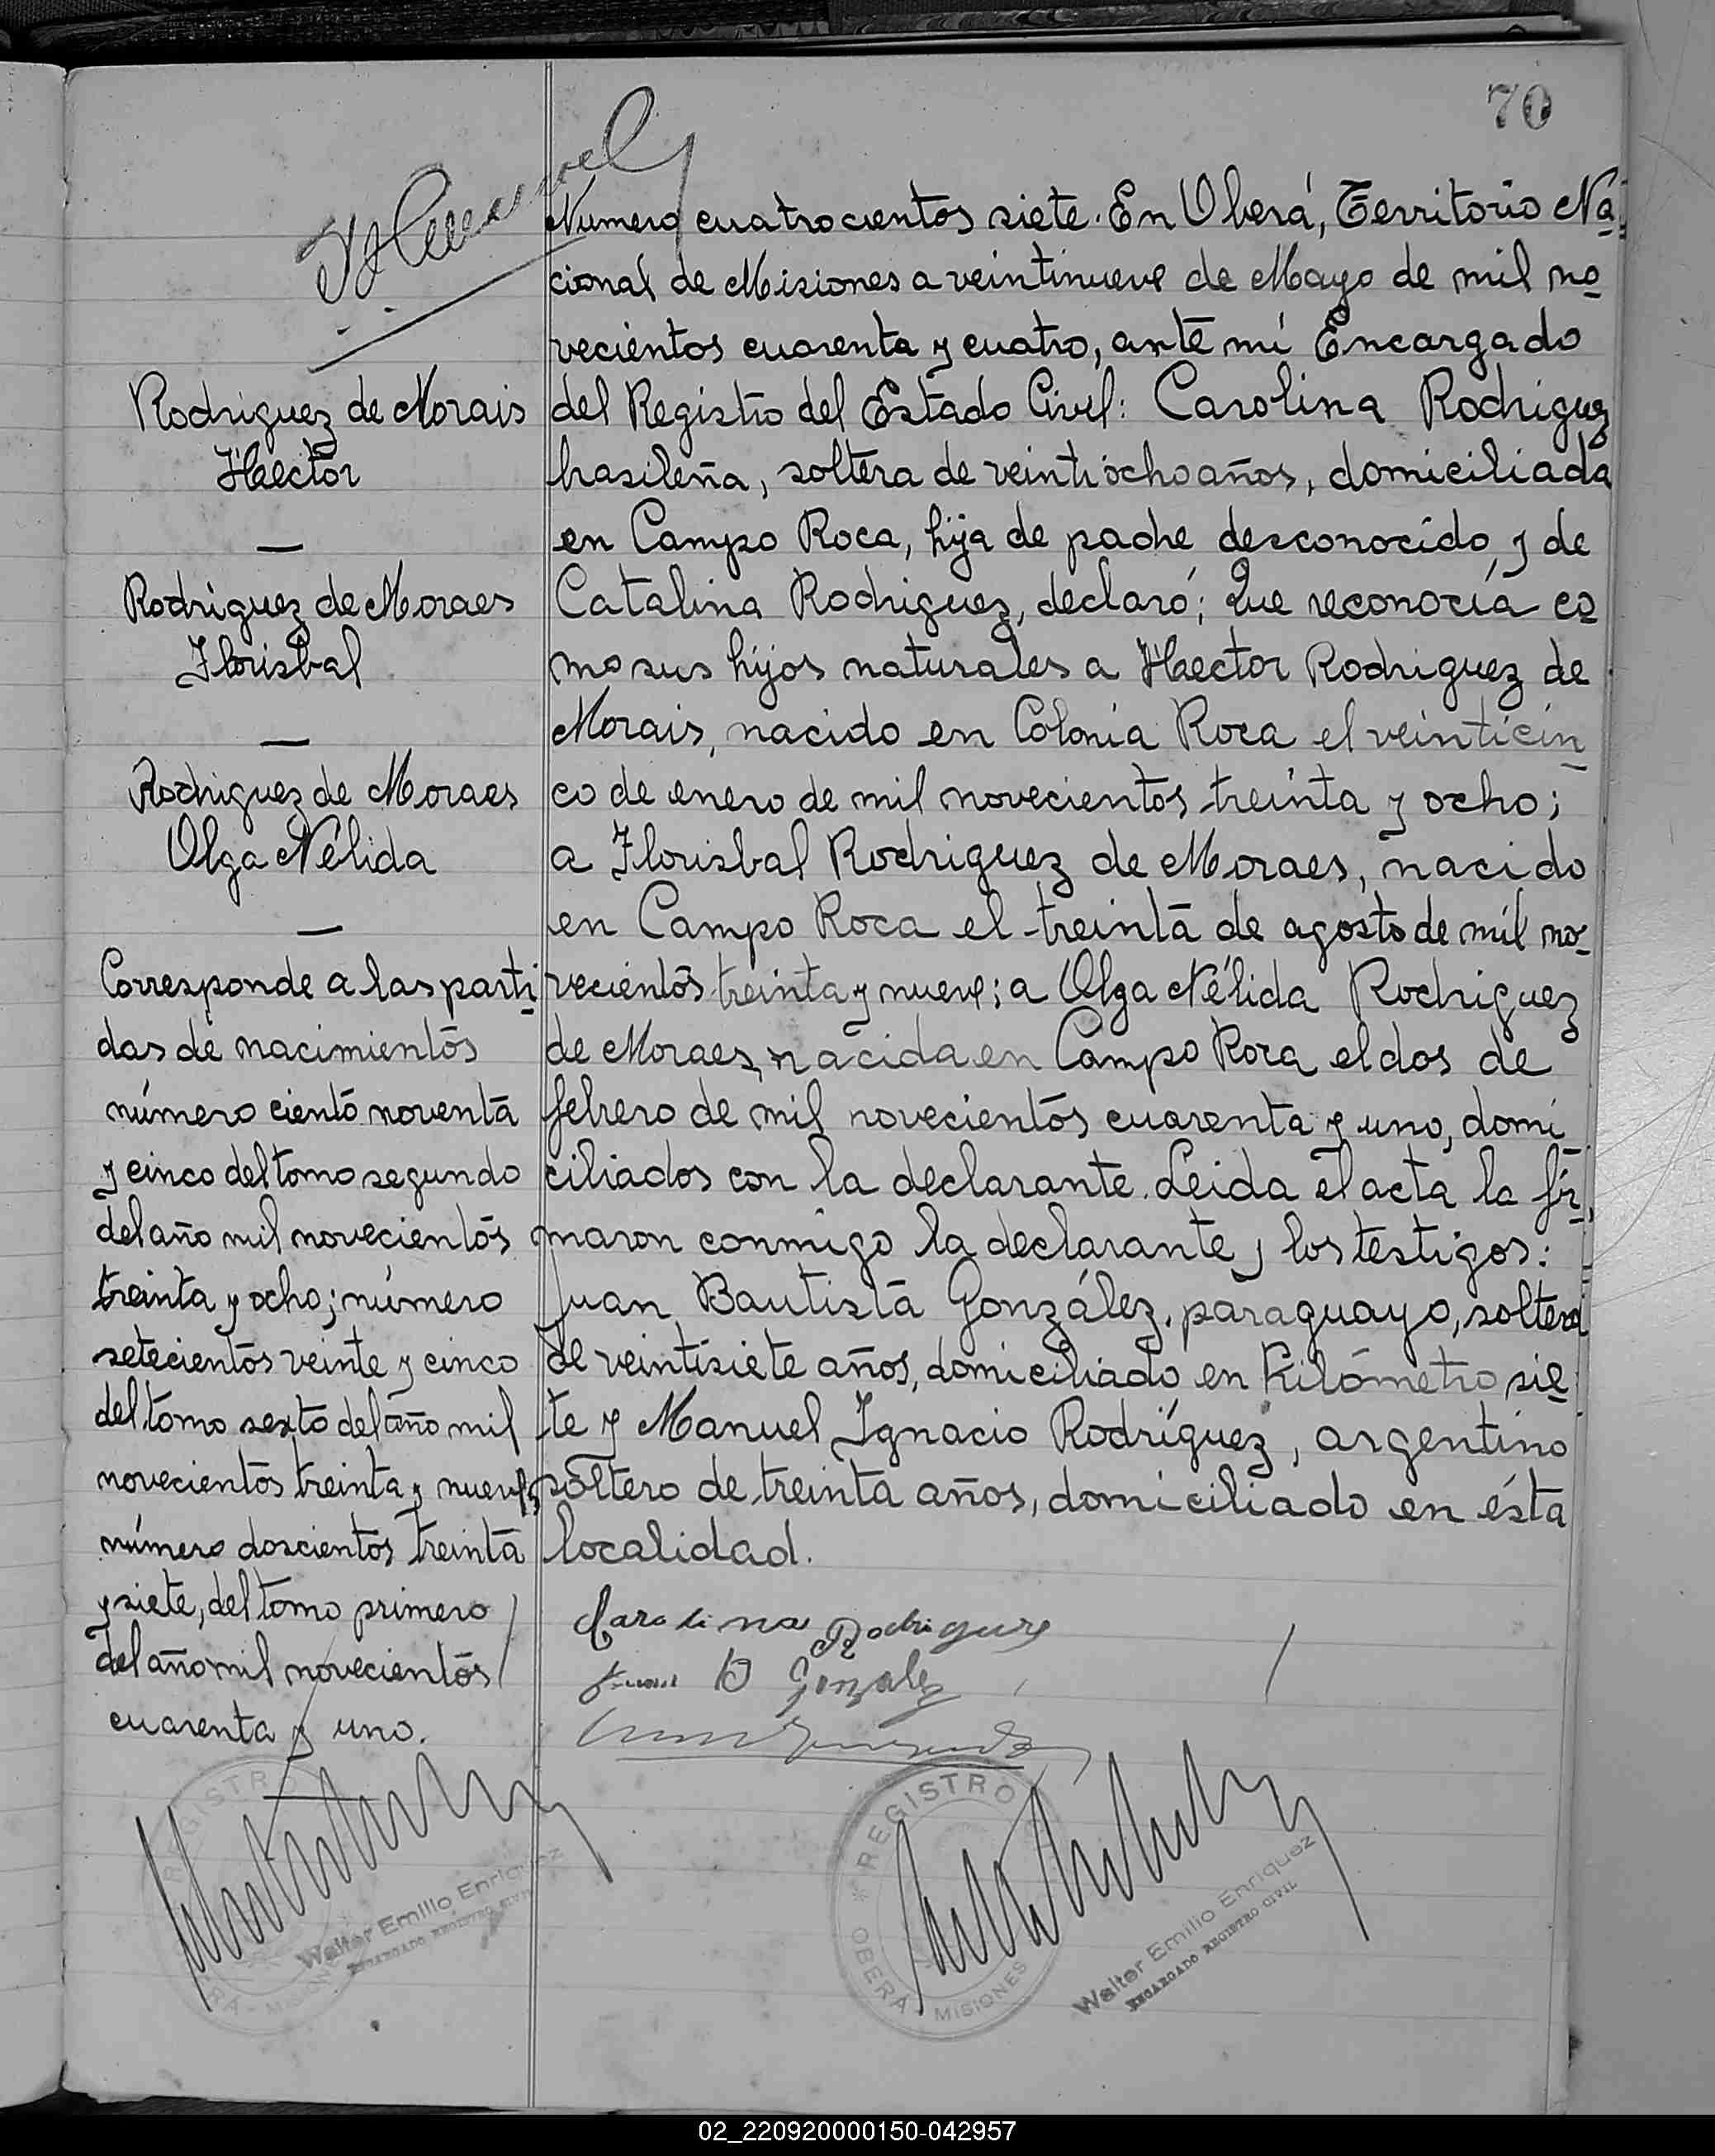 70
Rodriguez de Morais
Hector
Rodriguez de Moraes
Florisbal
Rodriguez de Moraes
Olga Nélida
Corresponde a las parti
das de nacimientos
número ciento noventa
y cinco del tomo segundo
del año mil novecientos
treinta y ocho; número
setecientos veinte y cinco
del tomo sexto del año mil
novecientos treinta y nueve,
número doscientos treinta
y siete, del tomo primero
del año mil novecientos
cuarenta y uno.
Numero cuatrocientos siete. En Oberá, Territorio Na
cional de Misiones a veintinueve de Mayo de mil no
vecientos cuarenta y cuatro, ante mí Encargado
del Registro del Estado Civil: Carolina Rodriguez
brasileña, soltera de veintiocho años, domiciliada
en Campo Roca, hija de padre desconocido, y de
Catalina Rodriguez, declaró: Que reconocía co
mo sus hijos naturales a Hector Rodriguez de
Morais, nacido en Colonia Roca el veinticin
co de enero de mil novecientos treinta y ocho;
a Florisbal Rodriguez de Moraes, nacido
en Campo Roca el treinta de agosto de mil no
vecientos treinta y nueve; a Olga Nélida Rodriguez
de Moraes, nacida en Campo Roca el dos de
febrero de mil novecientos cuarenta y uno, domi
ciliados con la declarante. Leida el acta la fir
maron conmigo la declarante y los testigos:
Juan Bautista González, paraguayo, soltero
de veintisiete años, domiciliado en Kilómetro sie
te y Manuel Ignacio Rodríguez, argentino
soltero de treinta años, domiciliado en ésta
localidad.
Carolina Rodriguez
Juan B Gonzalez
REGISTRO
OBERÁ - MISIONES
Walter Emilio Enriquez
ENCARGADO REGISTRO CIVIL
REGISTRO
OBERÁ - MISIONES
Walter Emilio Enriquez
ENCARGADO REGISTRO CIVIL
02_220920000150-042957